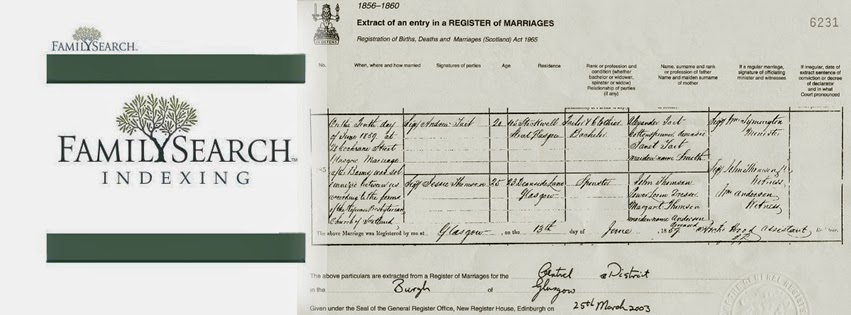 FAMILYSEARCH
FAMILYSEARCH™
INDEXING
1856–1860
Extract of an entry in a REGISTER of MARRIAGES
6231
Registration of Births, Deaths and Marriages (Scotland) Act 1965
No.
When, where and how married
Signatures of parties
Age
Residence
Rank or profession and condition (whether bachelor or widower, spinster or widow) Relationship of parties (if any)
Name, surname and rank or profession of Father Name and maiden surname of mother
If a regular marriage, signature of officiating minister and witnesses
If irregular, date of extract sentence of conviction or decree of declarator and in what Court pronounced
On the Tenth day
of June 1859 at
Cochrane Street
Glasgow Marriage
after Banns was sol
emnized between us
according to the forms
of the Presbyterian
Church of Scotland
Andrew Tart
Stockwell
Street Glasgow
Clothier
Bachelor
Alexander Tart
deceased
Janet Tart
maiden name Smith
Wm Symington
Minister
Jessie Thomson
25
Glasgow
Spinster
John Thomson
Margaret Thomson
maiden name Anderson
John Thomson
Witness
Wm Anderson
Witness
The above Marriage was Registered by me at Glasgow on the 13th day of June 1859 Assistant
The above particulars are extracted from a Register of Marriages for the Central District
in the Burgh of Glasgow
Given under the Seal of the General Register Office, New Register House, Edinburgh on 25th March 2003